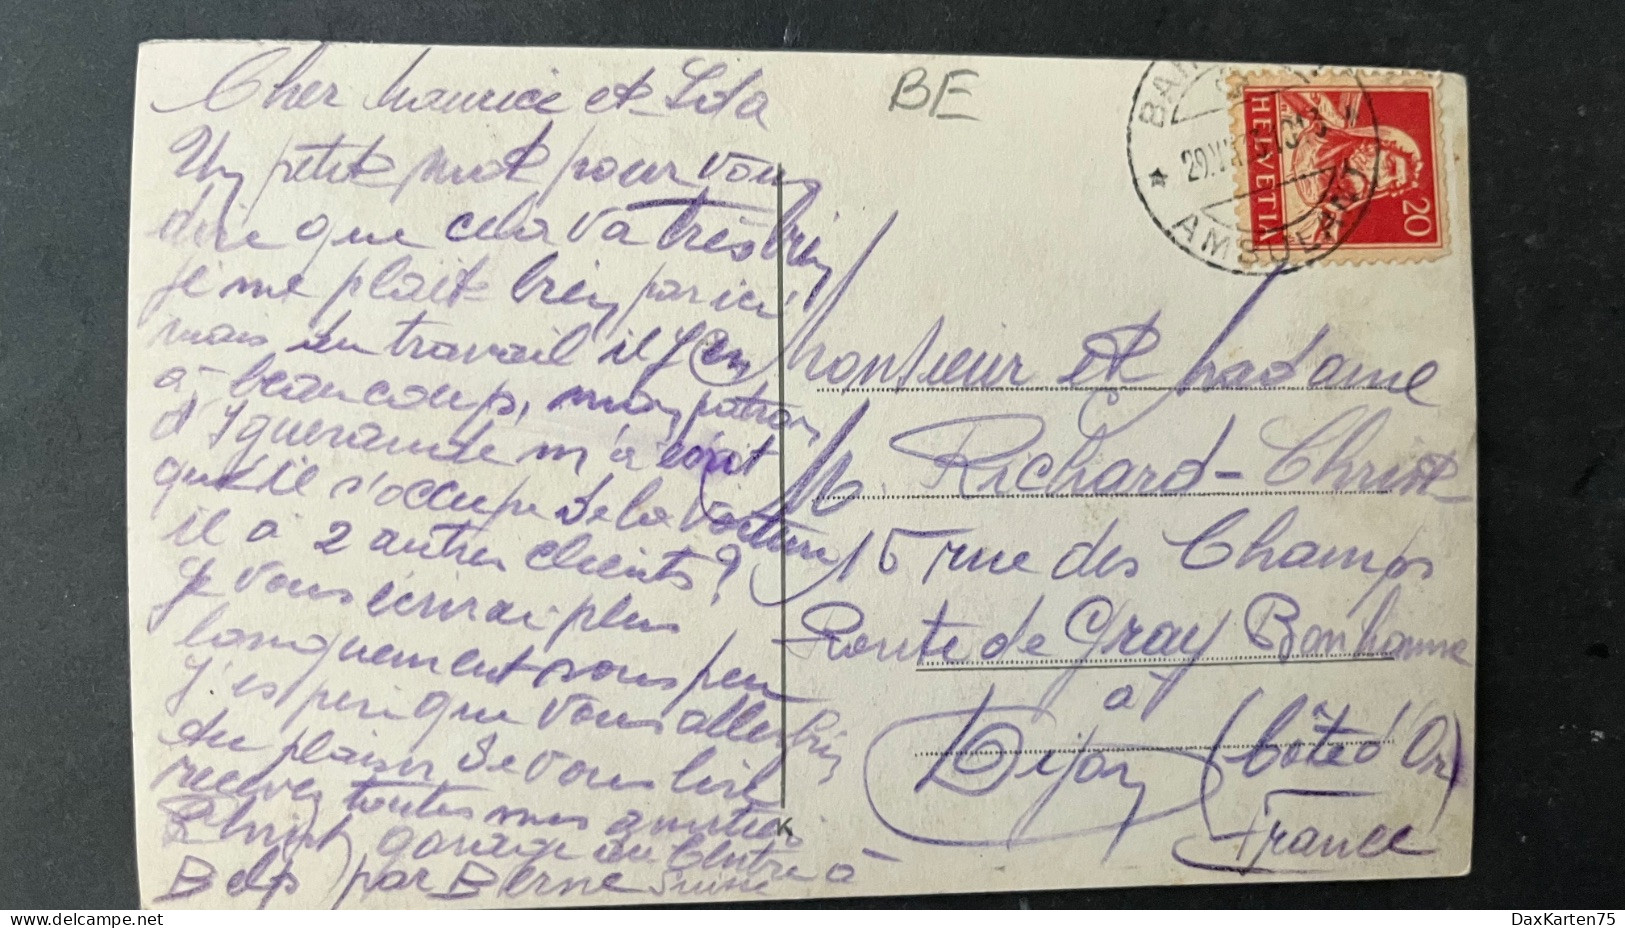 Cher Maurice et Lola
Un petit mot pour vous
dire que cela va très bien
je me plait bien par ici
mais du travail il y en
à beaucoup, mon patron
d'Iguerande m'a écrit
qu'il s'occupe de la voiture
il a 2 autres clients ?
Je vous écrirai plus
longuement sous peu
J'espère que vous allez bien
Au plaisir de vous lire
recevez toutes mes amitiés
Christ garage du Centre à
Belp par Berne Suisse
BE
HELVETIA
20
29.V
AMBULANT
K
Monsieur et Madame
M. Richard-Christ
15 rue des Champs
Route de Gray Bonhomme
à
Dijon (Côte d'Or)
France
DaxKarten75